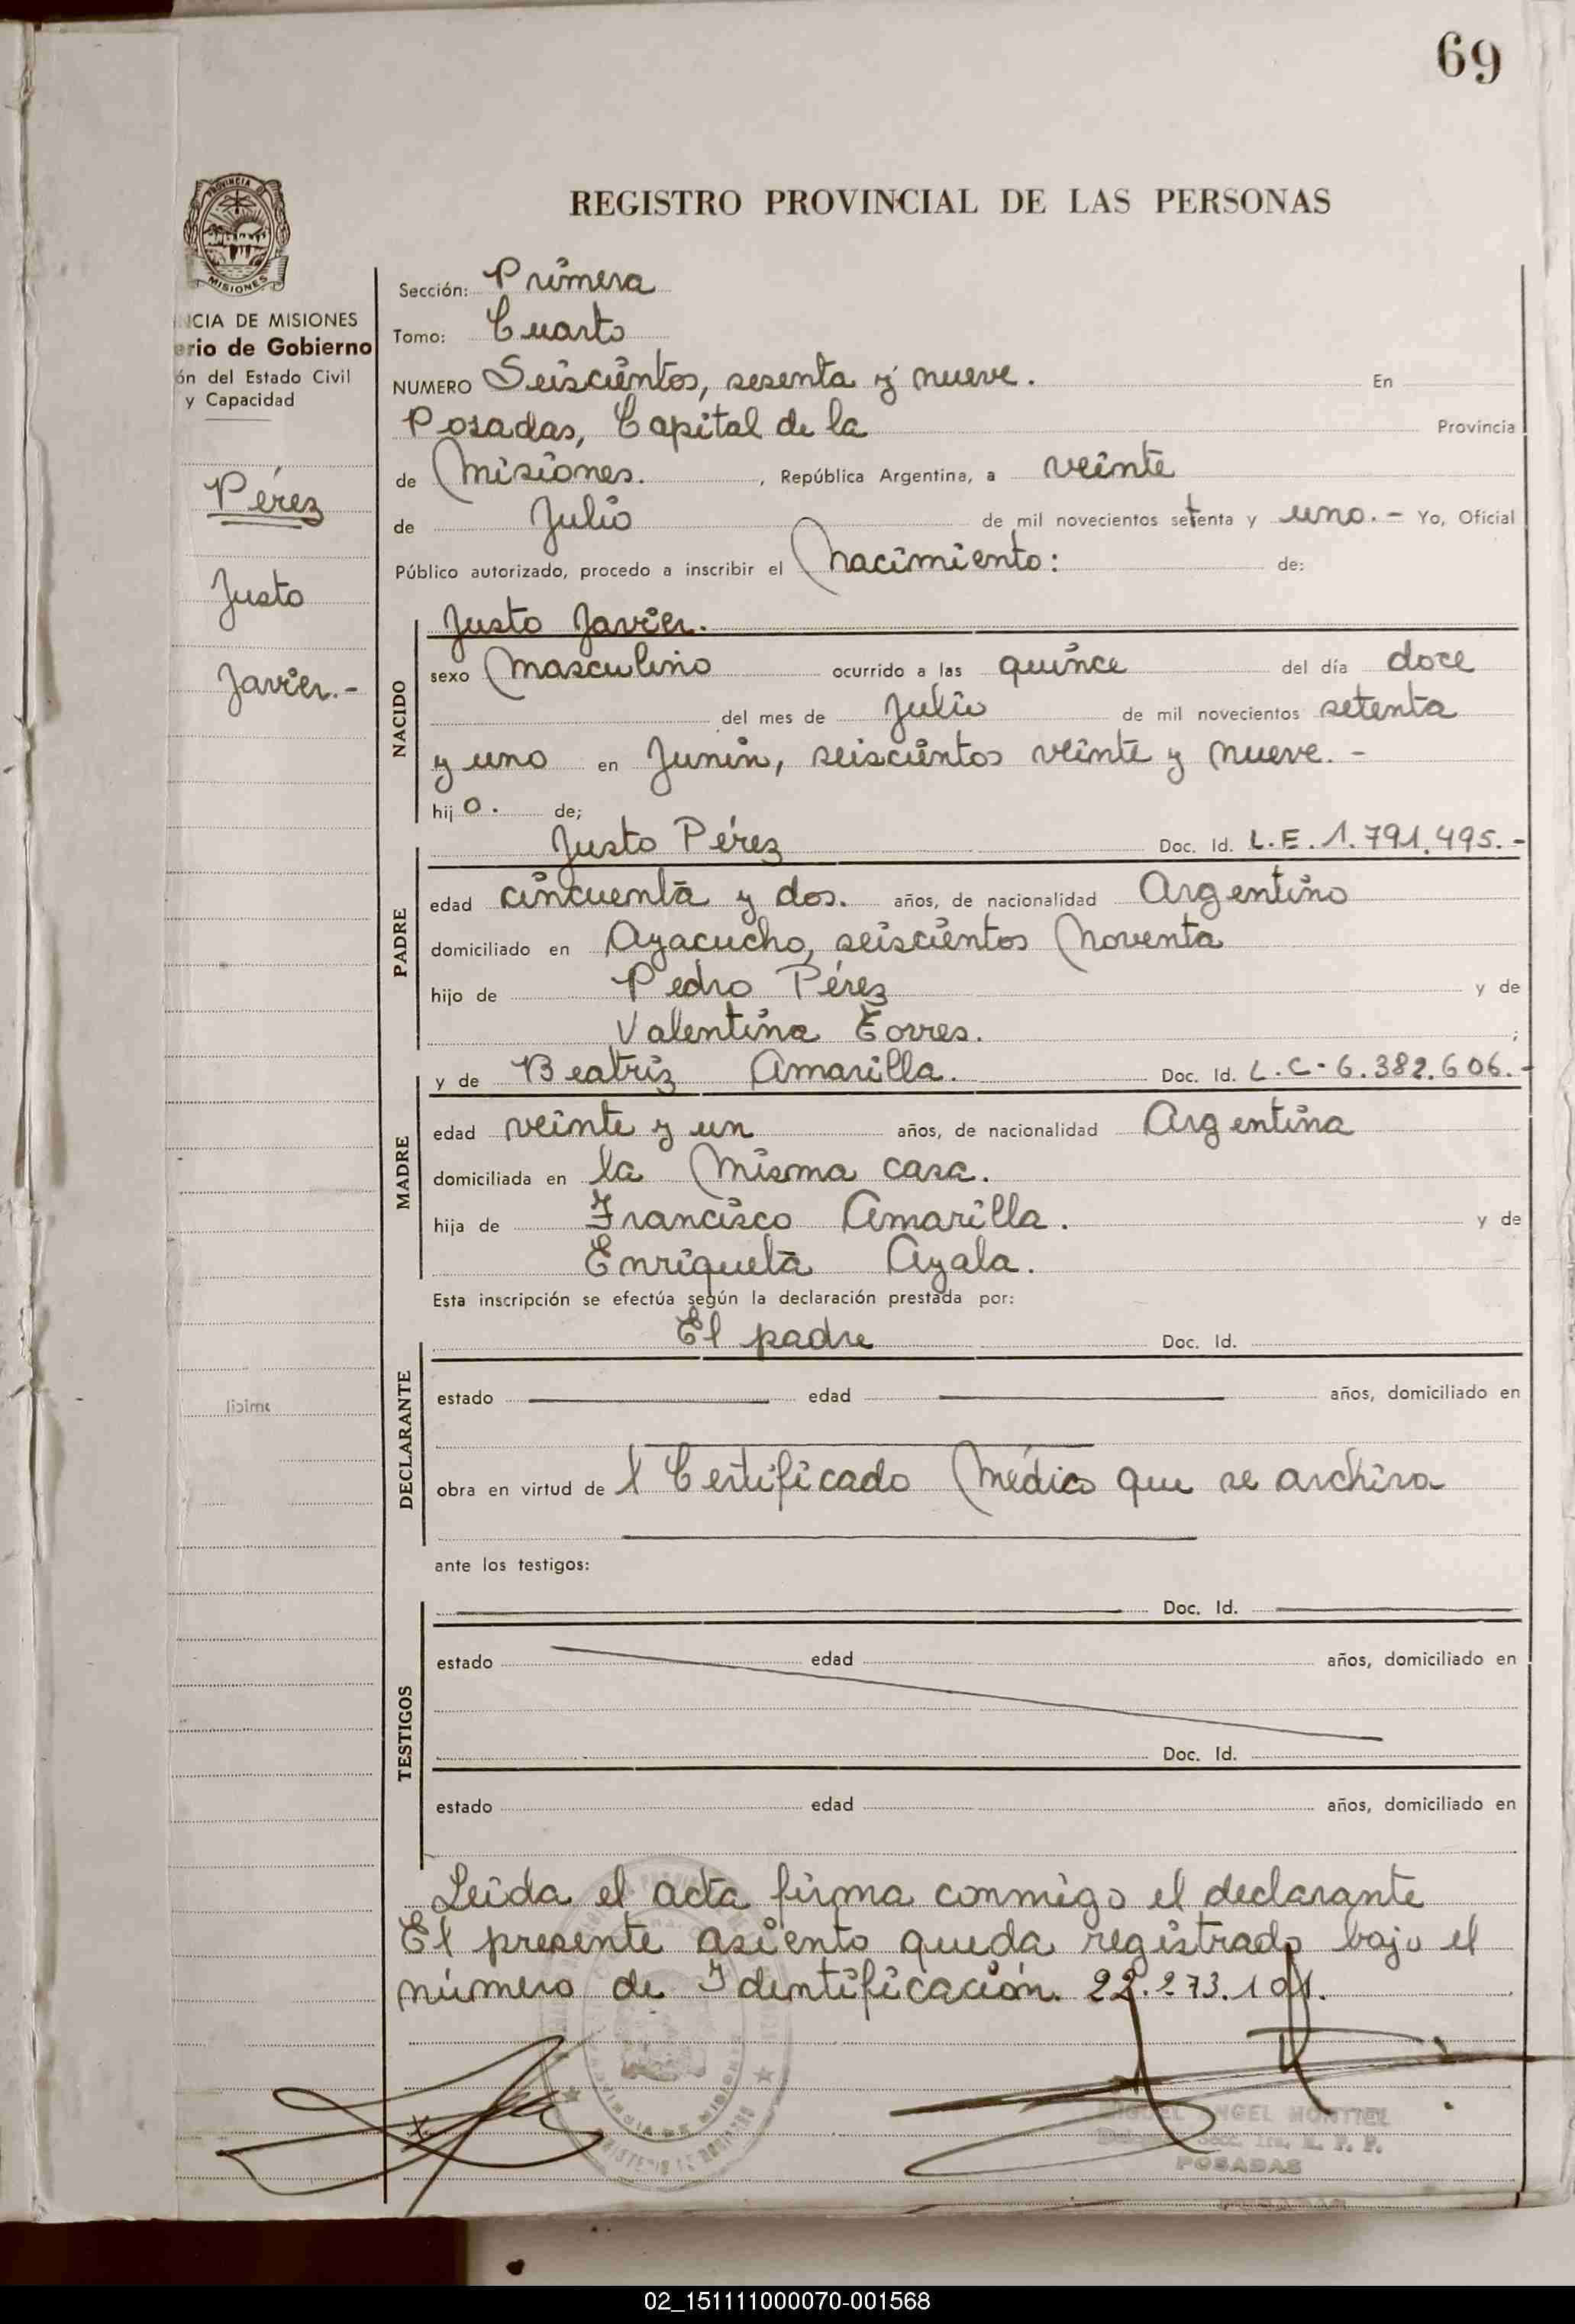 69
REGISTRO PROVINCIAL DE LAS PERSONAS
PROVINCIA DE
MISIONES
NCIA DE MISIONES
erio de Gobierno
ón del Estado Civil
y Capacidad
Pérez
Justo
Javier.-
Sección: Primera
Tomo: Cuarto
NUMERO Seiscientos, sesenta y nueve. En
Posadas, Capital de la Provincia
de Misiones. , República Argentina, a veinte
de Julio de mil novecientos setenta y uno.- Yo, Oficial
Público autorizado, procedo a inscribir el Nacimiento: de:
NACIDO
Justo Javier.
sexo Masculino ocurrido a las quince del día doce
del mes de Julio de mil novecientos setenta
y uno en Junin, seiscientos veinte y nueve.-
hijo. de;
PADRE
Justo Pérez Doc. Id. L.E. 1.791.495.-
edad cincuenta y dos. años, de nacionalidad Argentino
domiciliado en Ayacucho, seiscientos Noventa
hijo de Pedro Pérez y de
Valentina Torres. ;
MADRE
y de Beatriz Amarilla. Doc. Id. L.C-6.382.606.-
edad veinte y un años, de nacionalidad Argentina
domiciliada en la Misma casa.
hija de Francisco Amarilla. y de
Enriqueta Ayala.
Esta inscripción se efectúa según la declaración prestada por:
DECLARANTE
El padre Doc. Id.
estado edad años, domiciliado en
obra en virtud de l Certificado Médico que se archiva
ante los testigos:
TESTIGOS
Doc. Id.
estado edad años, domiciliado en
Doc. Id.
estado edad años, domiciliado en
Leida el acta firma conmigo el declarante
El presente asiento queda registrado bajo el
número de Identificación. 22.273.101.
MIGUEL ANGEL MONTIEL
Secc. 1ra. R. P. P.
POSADAS
02_151111000070-001568